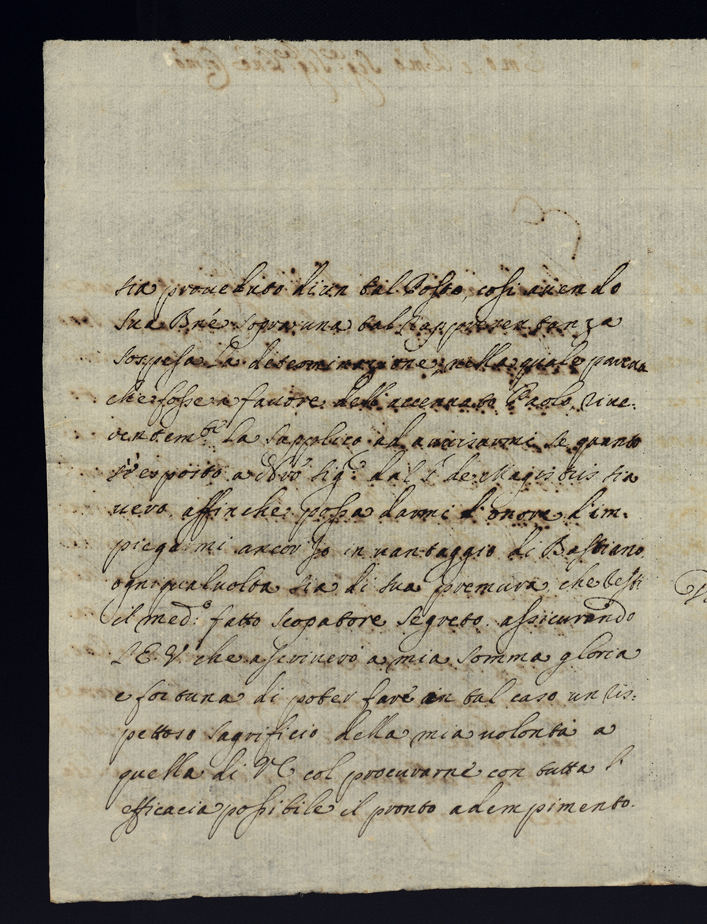 sia proueduto di un tal Posto, così auendo
Sua Bne sopra una tal rappresentanza
sospesa la determinazione, nella quale pareua
che fosse a fauore dell'accennato Paolo, riue-
rentemte la supplico ad auuisarmi se quanto
si è esposto a da Sigre dal de Magistris sia
uero affinche possa darmi l'onore d'im-
piegarmi ancor Io in uantaggio di Bastiano
ogni qualuolta sia di sua premura che resti
il medo fatto scopatore segreto. assicurando
l'E.V. che ascriuerò a mia somma gloria
e fortuna di poter fare in tal caso un ris-
pettoso sagrificio della mia uolontà a
quella di VE col procurarne con tutta l'
efficacia possibile il pronto adempimento.